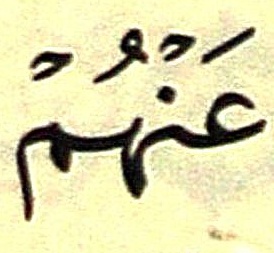 عَنْهُمْ